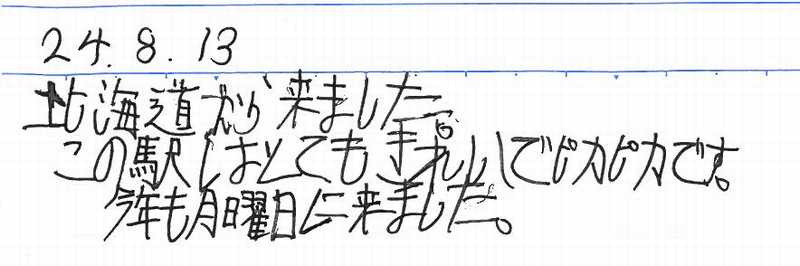 24.8.13
北海道から来ました。
この駅はとてもきれいでピカピカです。
今年も月曜日に来ました。